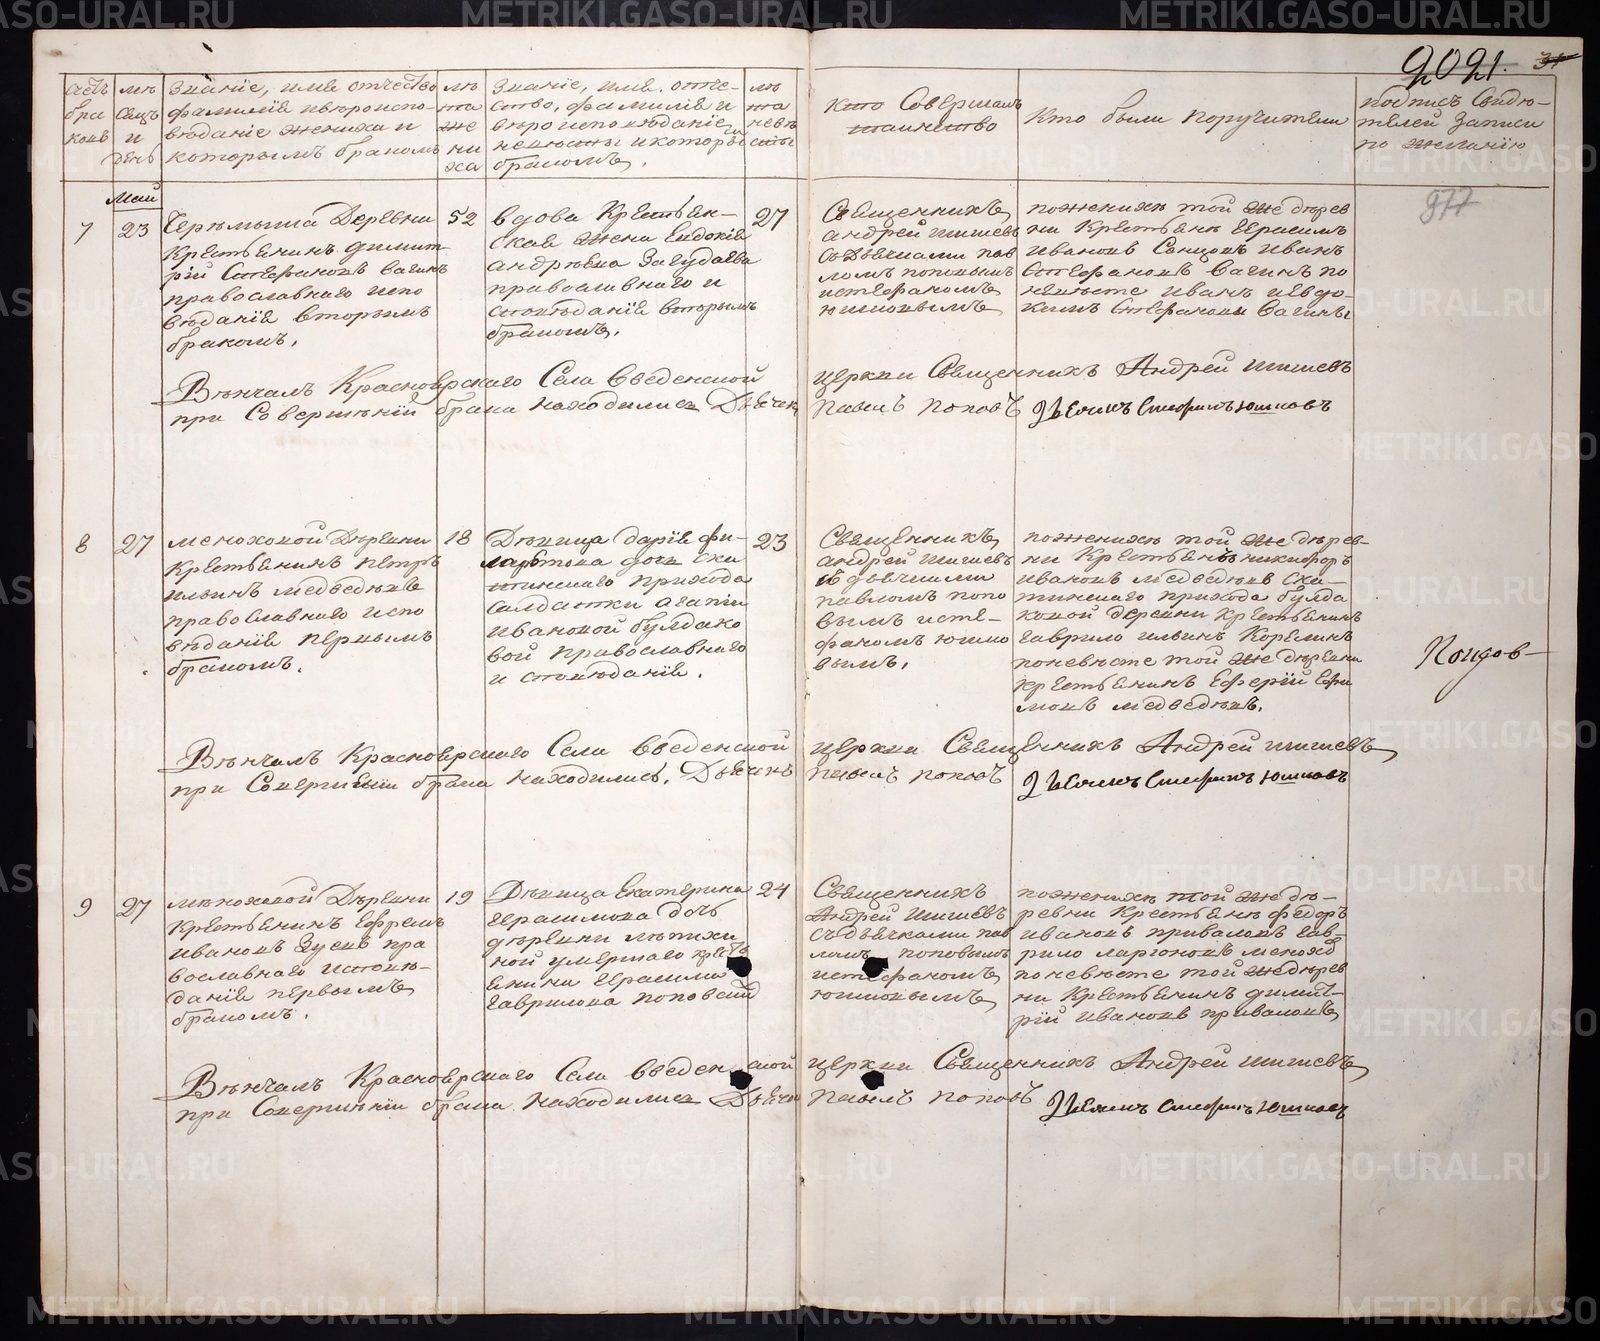 2021. 31
977
счетъ бра ковъ
мѣ сяцъ и день
Званіе, имя отчество
фамилія ивѣроиспо-
вѣданіе жениха и
которымъ бракомъ
лѣ та же ни ха
Званіе, имя, отче-
ство, фамилія и
вѣроисповѣданіе
невѣсты и которы
бракомъ.
лѣ та невѣ сты
Кто совершалъ
таинство
Кто были поручители
подпись свидѣ-
телей записи
по желанію
Май
7
23
Черемыша деревни
крестьянинъ димит-
рій Стефановъ Вагинъ
православнаго испо
вѣданія вторымъ
бракомъ.
52
вдова Крестьян-
ская жена Евдокія
андрѣева Загудаева
православнаго и
сповѣданія вторымъ
бракомъ.
27
Священникъ
андрей шишевъ
съ дьячками пав
ломъ поповымъ
истефаномъ
юшковымъ
пожених той же дерев
ни Крестьяне Герасимъ
Ивановъ Иванъ
Стефановъ Вагинъ по
невѣсте Иванъ иевдо-
кимъ Стефановы Вагины
Вѣнчалъ Красноярскаго Села Введенской церкви Священникъ Андрей шишевъ
при Совершеніи брака находились Дьячек Павелъ поповъ Дьячикъ Стефанъ Юшковъ
8
27
меноховой деревни
крестьянинъ петръ
ильинъ медведевъ
православнаго испо
веданія первымъ
бракомъ.
18
Девица дарія фи-
латова дочь ска
тинскаго прихода
салдатки агапіи
ивановой булдако
вой православнаго
и сповѣданія.
23
Священникъ
андрей шишевъ
с дьячками
павломъ попо
вымъ исте-
фаномъ юшко
вымъ.
пожених той же дерев-
ни Крестьянъ никифоръ
ивановъ медведевъ ска-
тинскаго прихода булда
ковой деревни крестьянинъ
гаврило ильинъ Корелинъ
поневѣсте той же деревни
крестьянинъ Ефи
мовъ медведевъ.
Вѣнчалъ Красноярскаго Села введенской церкви Священникъ Андрей шишевъ
при Совершеніи брака находились. Дьячекъ Павелъ поповъ Дьячикъ Стефанъ Юшковъ
9
27
меноховой деревни
крестьянинъ Ефремъ
ивановъ Зуевъ пра
вославнаго исповѣ-
данія первымъ
бракомъ.
19
Девица Екатерина
Герасимова дочь
деревни
ной умершаго кресть
янина Герасима
Гаврилова поповой
24
Священникъ
Андрей Шишевъ
съ дьячками пав
ломъ поповымъ
истефаномъ
юшковымъ
пожених той же де-
ревни крестьяне федоръ
ивановъ приваловъ гав-
рило ларионовъ
поневѣсте той же дерев
ни крестьянинъ димит-
рій Ивановъ приваловъ
Вѣнчалъ Красноярскаго Села введенской церкви Священникъ Андрей шишевъ
при Совершеніи брака находились Дьячек Павелъ поповъ Дьячикъ Стефанъ Юшковъ
METRIKI.GASO-URAL.RU